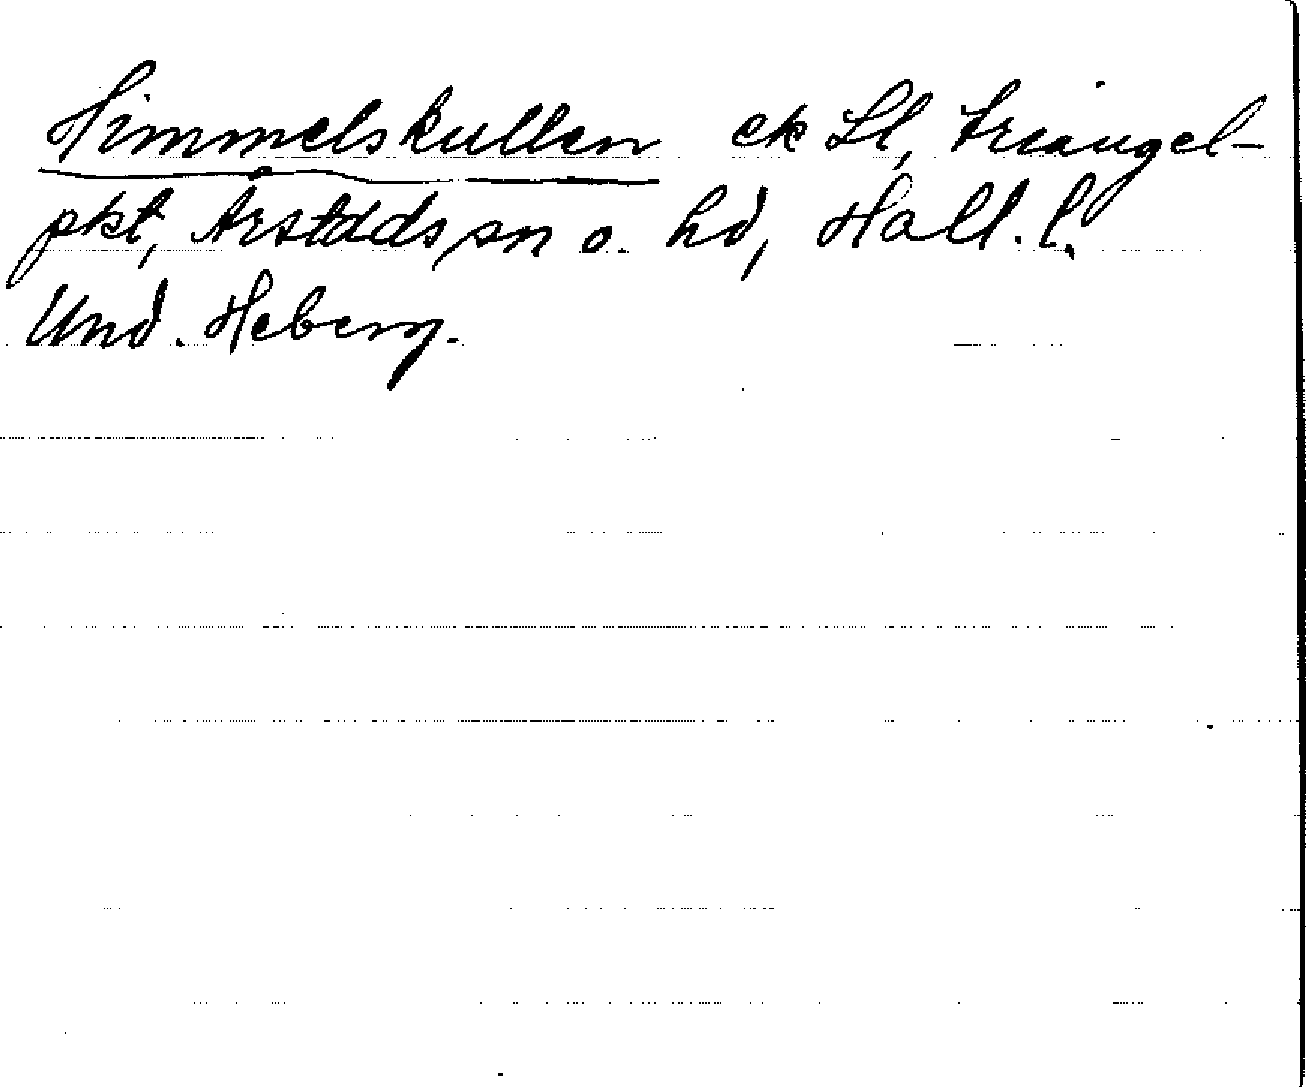 Himmelskullen ek Ll, triangel-
pkt, Årstads sn o. hd, Hall. l.
Und. Heberg.